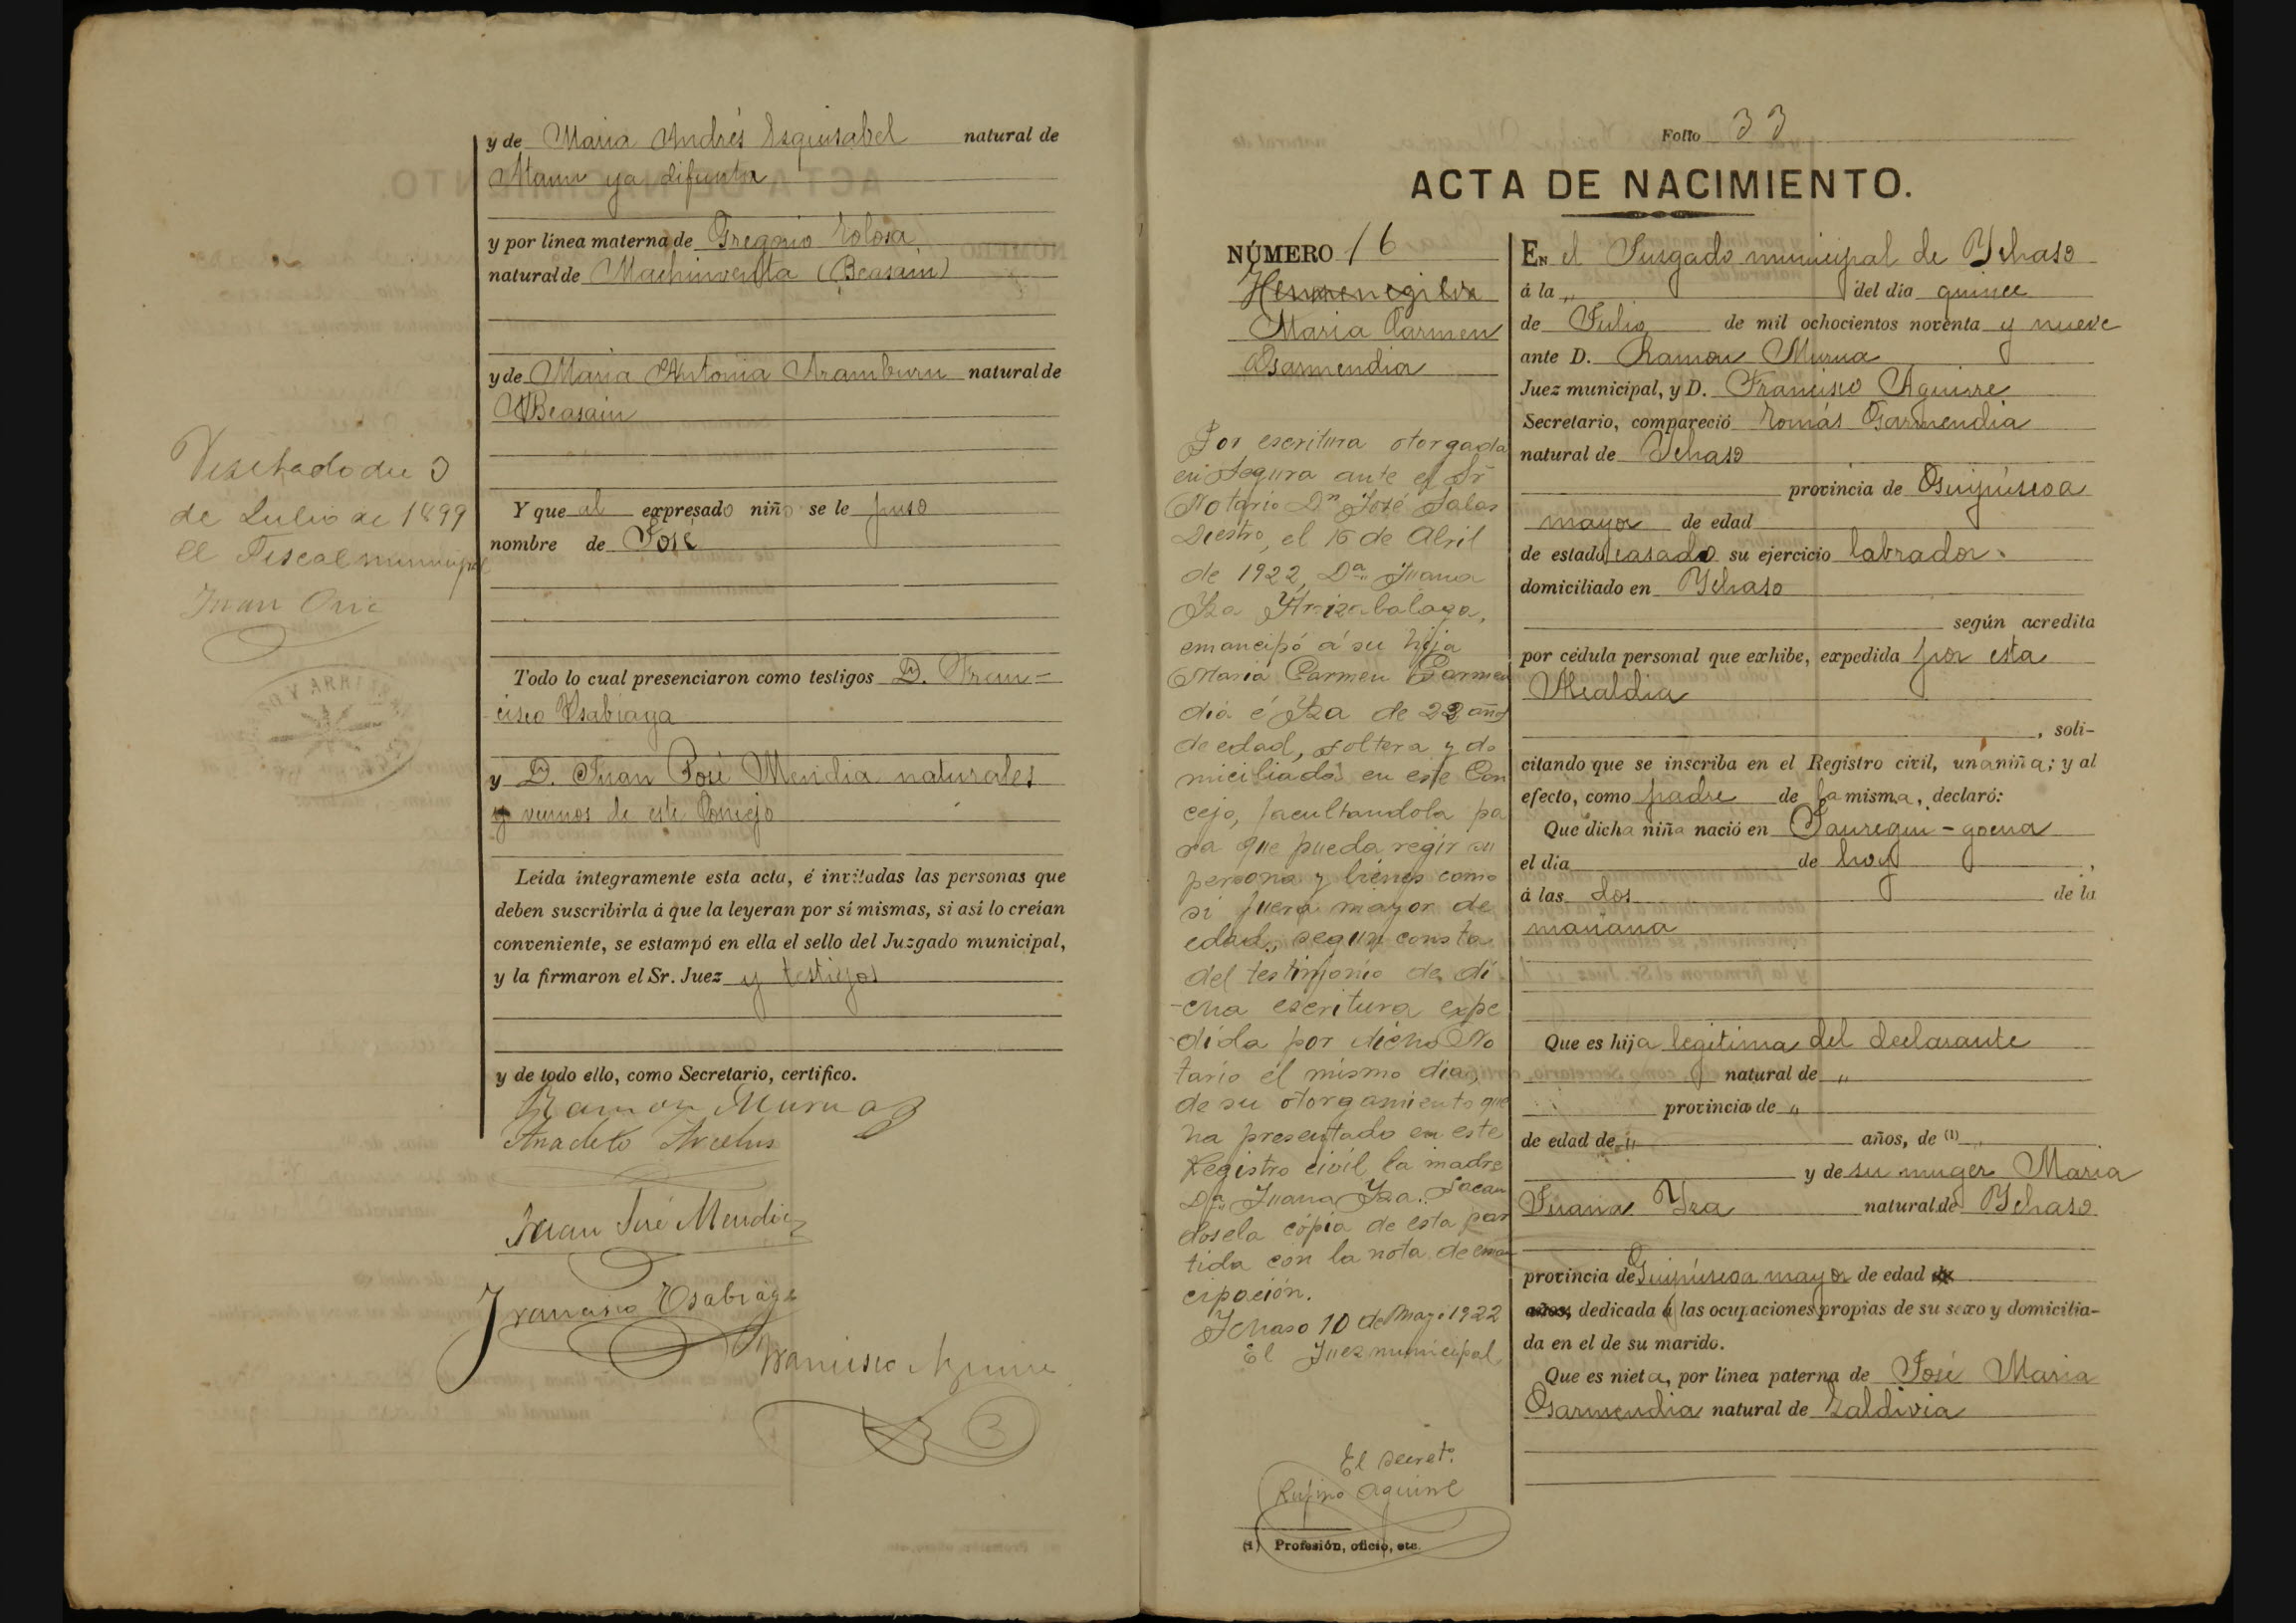 y de Maria Andrés Esquisabel natural de
Ataun ya difunta
y por línea materna de Gregorio Tolosa
natural de Machinventa (Beasain)
y de Maria Antonia Aramburu natural de
Beasain
Y que al expresado niño se le puso
nombre de José
Todo lo cual presenciaron como testigos D. Fran-
cisco Ysabiaga
y D. Juan José Mendia naturales
y vecinos de este Concejo
Leída íntegramente esta acta, é invitadas las personas que
deben suscribirla á que la leyeran por sí mismas, si así lo creían
conveniente, se estampó en ella el sello del Juzgado municipal,
y la firmaron el Sr. Juez y testigos
y de todo ello, como Secretario, certifico.
Ramon Murua
Anacleto
Juan José Mendia
Francisco Ysabiaga
Francisco Aguirre
de Julio de 1899
El Fiscal municipal
Juan
Folio 33
ACTA DE NACIMIENTO.
NÚMERO 16
Hermenegilda
Maria Carmen
Garmendia
Por escritura otorgada
en Segura ante el Sr
Notario Dn José Salas
Diestro, el 16 de Abril
de 1922, Da Juana
Yza
emancipó á su hija
Maria Carmen Garmen
dia é Yza de 22 años
de edad, soltera y do
miciliada en este Con
cejo, facultandola pa
ra que pueda regir su
persona y bienes como
si fuera mayor de
edad, segun consta
del testimonio de di
-cha escritura expe
dida por dicho No
tario el mismo dia
de su otorgamiento que
ha presentado en este
Registro civil la madre
Da Juana Yza. Sacan
dosela cópia de esta par
tida con la nota de eman
cipación.
Ychaso 10 de Mayo 1922
El Juez municipal
El Secreto.
Rufino Aguirre
(1) Profesión, oficio, etc.
EN el Jusgado municipal de Ychaso
á la „ del día quince
de Julio de mil ochocientos noventa y nueve
ante D. Ramon Murua
Juez municipal, y D. Francisco Aguirre
Secretario, compareció Tomás Garmendia
natural de Ychaso
provincia de Guipúscoa
mayor de edad
de estado casado su ejercicio labrador
domiciliado en Ychaso
según acredita
por cédula personal que exhibe, expedida por esta
Alcaldia
, soli-
citando que se inscriba en el Registro civil, una niña; y al
efecto, como padre de la misma, declaró:
Que dicha niña nació en Jauregui-goena
el día de hoy,
á las dos de la
mañana
Que es hija legitima del declarante
natural de „
provincia de „
de edad de „ años, de (1) „
y de su muger Maria
Juana Yza natural de Ychaso
provincia de Guipúscoa mayor de edad de
años, dedicada á las ocupaciones propias de su sexo y domicilia-
da en el de su marido.
Que es nieta, por línea paterna de José Maria
Garmendia natural de Zaldivia